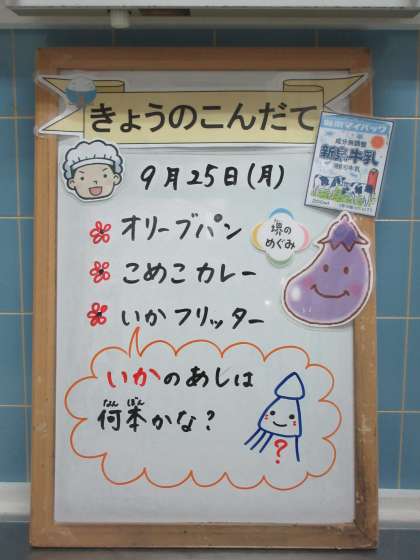 きょうのこんだて
9月25日(月)
オリーブパン
堺の
めぐみ
こめこカレー
いかフリッター
いかのあしは
なん ぼん
何本かな?
?
成分無調整
牛乳